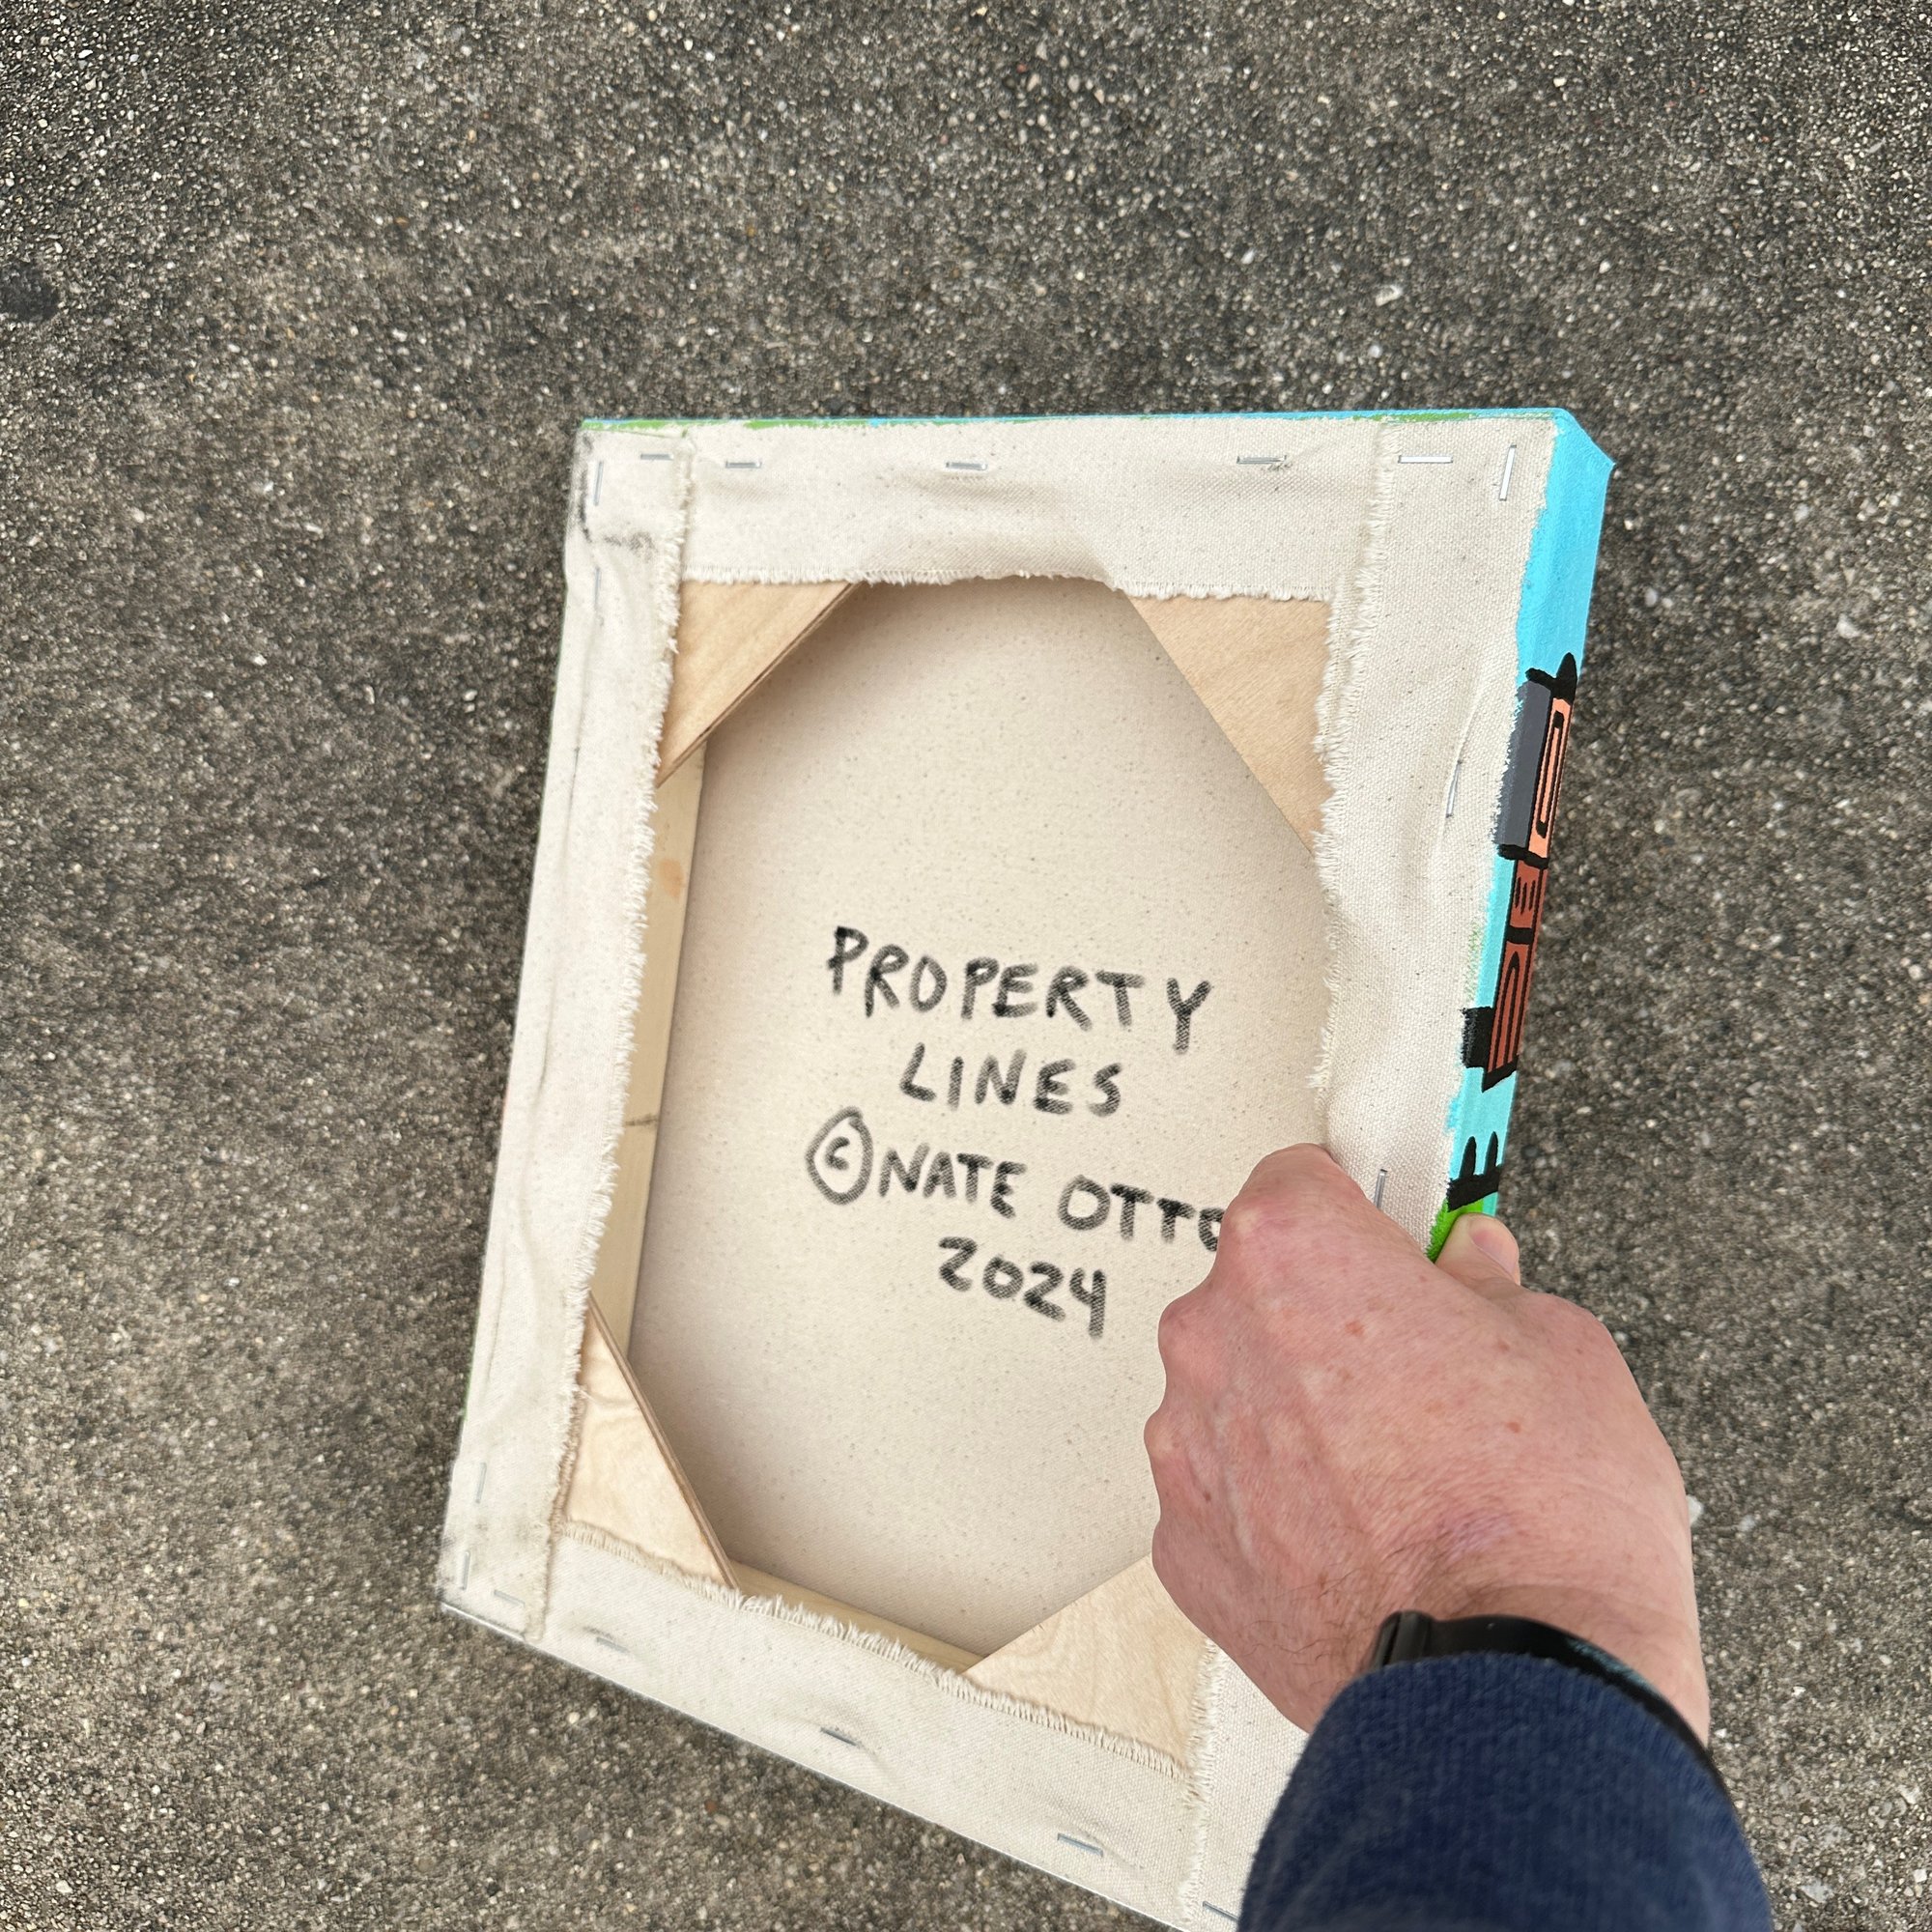 PROPERTY
LINES
© NATE OTTO
2024